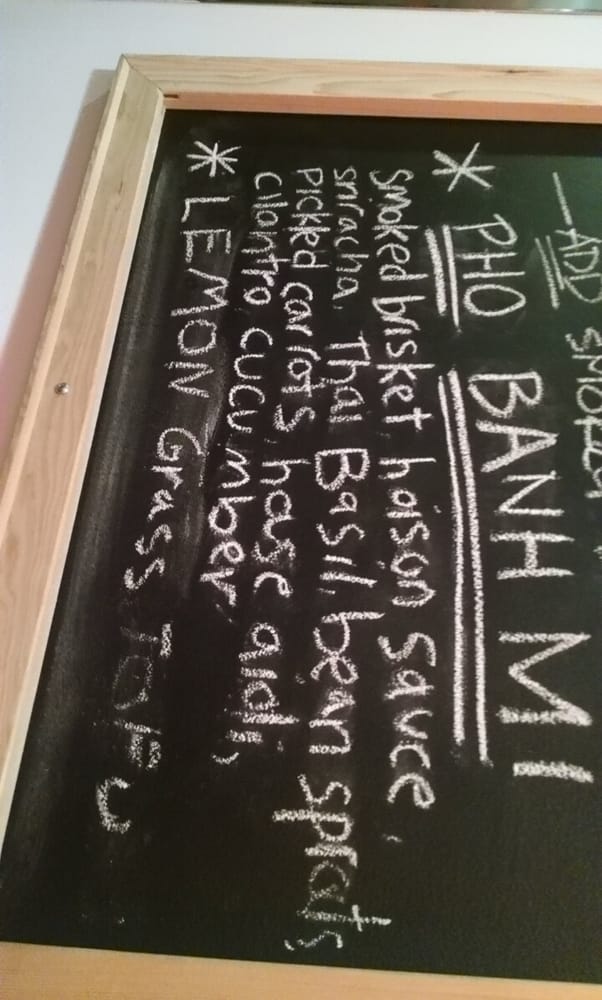 — ADD SMOKED
* PHO BANH MI
Smoked brisket hoison sauce,
sriracha, Thai Basil, bean sprats,
Pickled carrots house aiali,
cilantro cucumber,
* LEMON Grass ToFu